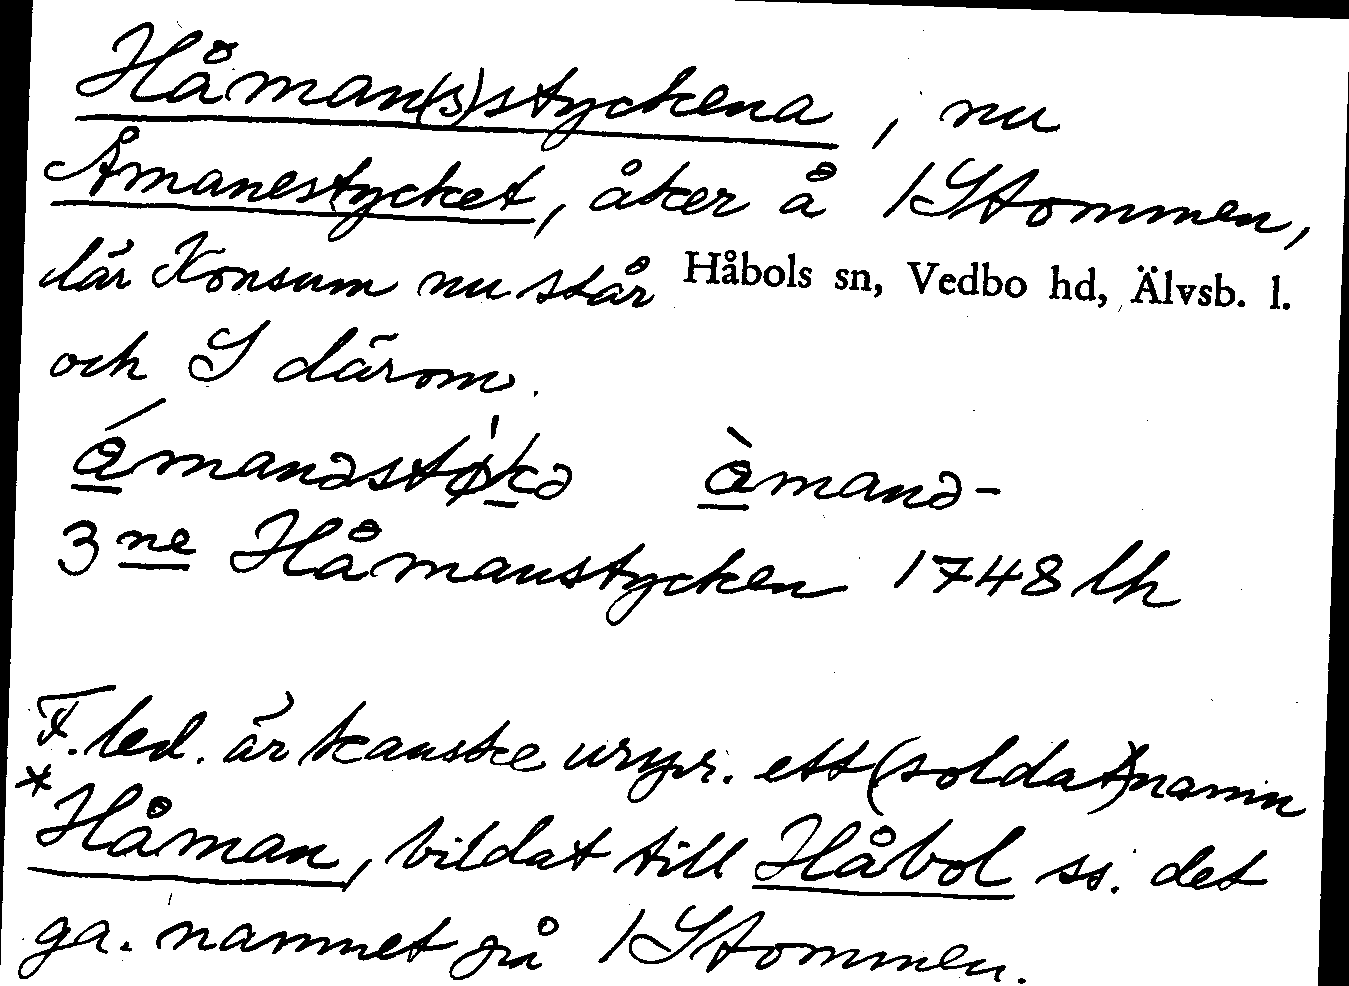 Håman(s)styckena, nu
Åmanestycket, åker å 1 Stommen,
där Konsum nu står Håbols sn, Vedbo hd, Älvsb. l.
och S därom.
ámanəstø̍kə àmanə-
3ne Håmanstycken 1748 lh
F.led. är kanske urspr. ett (soldat)namn
*Håman, bildat till Håbol ss. det
ga. namnet på 1 Stommen.